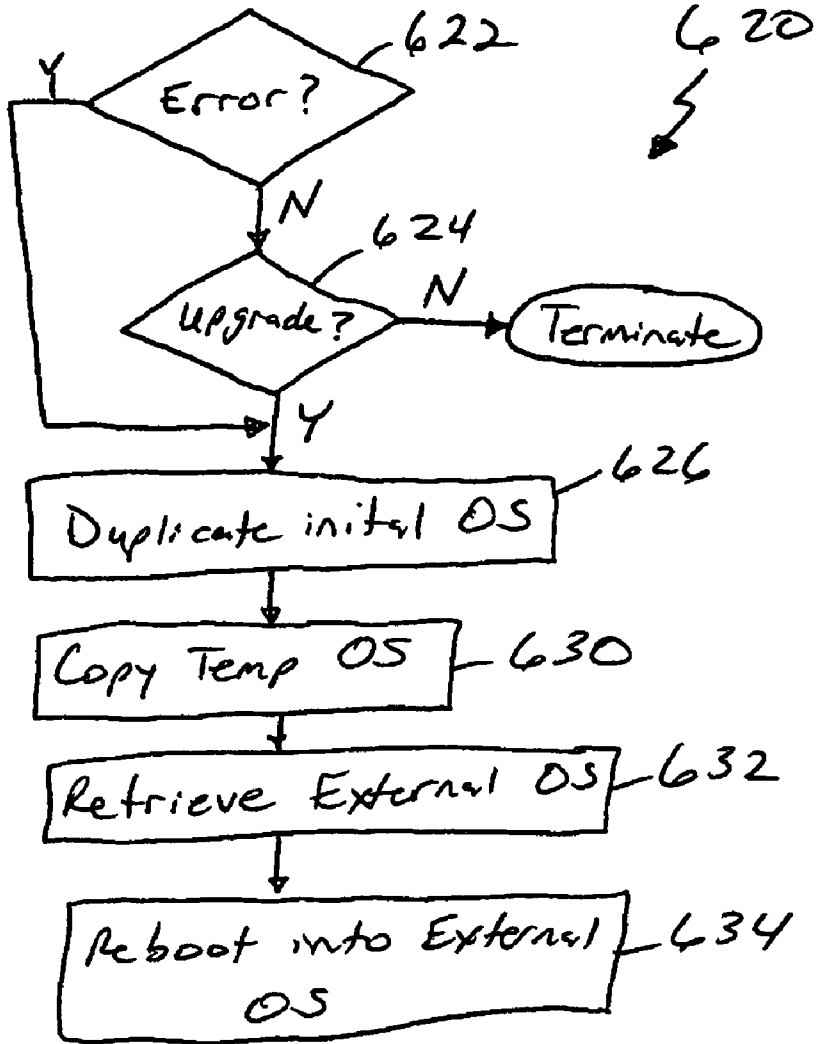 622
620
Y
Error?
N
624
Upgrade?
N
Terminate
Y
626
Duplicate inital OS
Copy Temp OS
630
Retrieve External OS
632
Reboot into External
OS
634